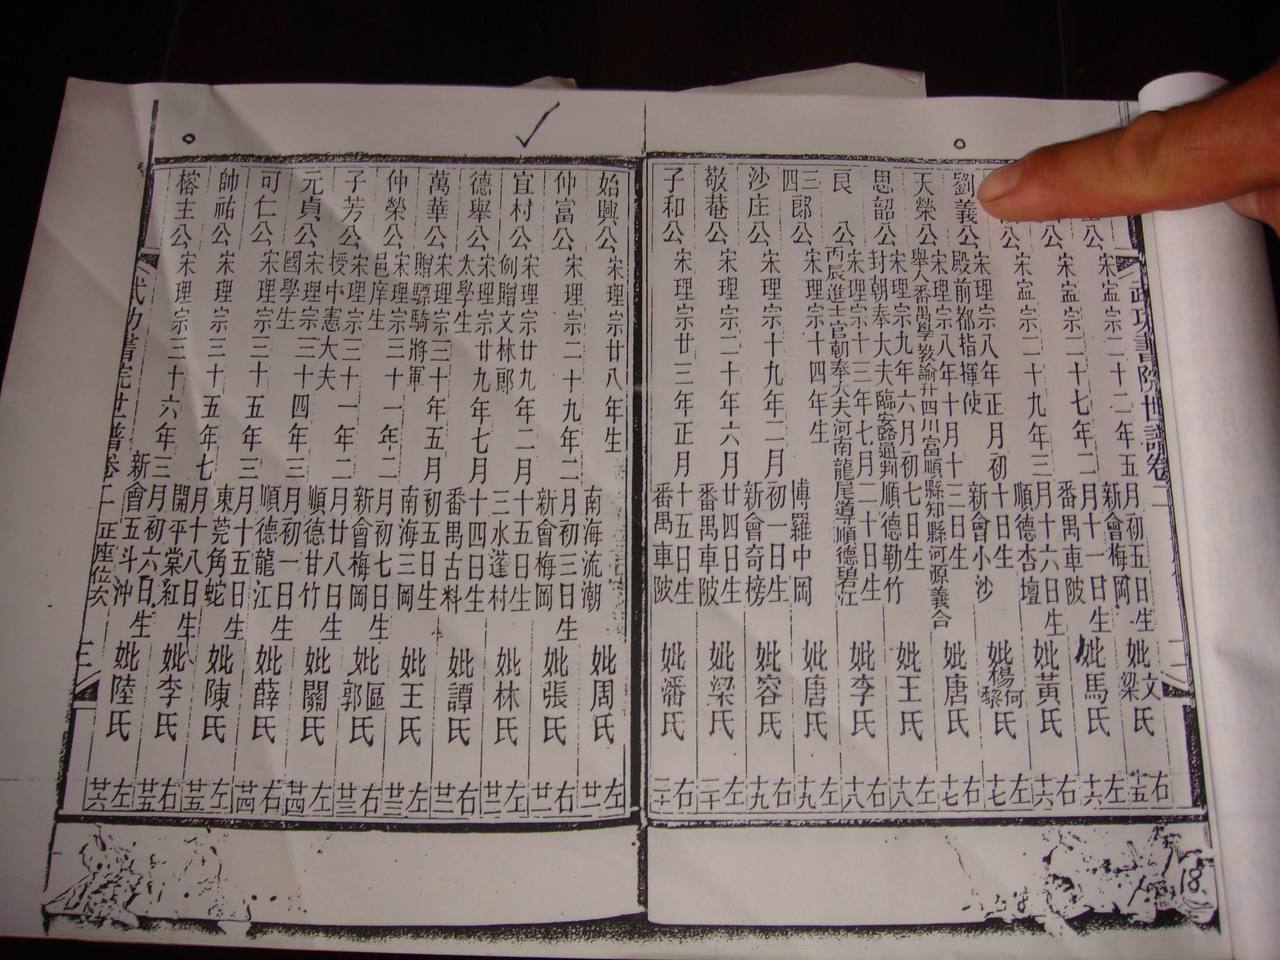 武功書院世譜卷二
公宋寧宗二十二年五月初五日生新會梅岡妣文梁氏右十五
公宋寧宗二十七年二月十一日生番禺車陂妣馬氏左十六
公宋寧宗二十九年三月十六日生順德杏壇妣黃氏右十六
公宋理宗八年正月初十日生殿前都指揮使新會小沙妣何楊黎氏左十七
劉義公宋理宗八年十月十三日生舉人番禺學教諭廿四川富順縣知縣河源義合妣唐氏右十七
天榮公宋理宗九年六月初七日生封朝奉大夫臨安路通判順德勒竹妣王氏左十八
思韶公宋理宗十三年七月二十日生丙辰進士官朝奉大夫河南龍尾導順德碧江妣李氏右十八
艮公宋理宗十四年生博羅中岡妣唐氏左十九
三四郎公
沙庄公宋理宗十九年二月初一日生新會奇榜妣容氏右十九
敬菴公宋理宗二十年六月廿四日生番禺車陂妣梁氏左二十
子和公宋理宗廿三年正月十五日生番禺車陂妣潘氏右二十
始興公宋理宗廿八年生南海流潮妣周氏左廿一
仲富公宋理宗二十九年二月初三日生新會梅岡妣張氏右廿一
宜村公宋理宗廿九年二月十五日生例贈文林郎三水蓬村妣林氏左廿二
德舉公宋理宗廿九年七月十四日生太學生番禺古料妣譚氏右廿二
萬華公宋理宗三十年五月初五日生贈驃騎將軍南海三岡妣王氏左廿三
仲榮公宋理宗三十一年二月初七日生邑庠生新會梅岡妣區郭氏右廿三
子芳公宋理宗三十一年二月廿八日生授中憲大夫順德甘竹妣關氏左廿四
元貞公宋理宗三十四年三月初一日生國學生順德龍江妣薛氏右廿四
可仁公宋理宗三十五年三月十五日生東莞角蛇妣陳氏左廿五
帥祐公宋理宗三十五年七月十八日生開平棠紅妣李氏右廿五
榕主公宋理宗三十六年三月初六日生新會五斗沖妣陸氏左廿六
武功書院世譜卷二 正座位六 三
18